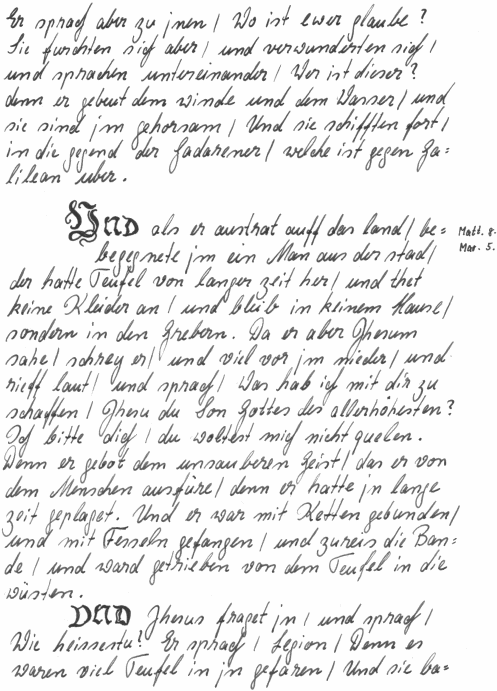 Er sprach aber zu jnen / Wo ist ewer glaube?
Sie furchten sich aber / und verwunderten sich /
und sprachen untereinander / Wer ist dieser?
denn er gebeut dem winde und dem Wasser / und
sie sind jm gehorsam / Und sie schifften fort /
in die gegend der Gadarener / welche ist gegen Ga=
lilean uber.
Und als er austrat auff das land / be= Matt. 8.
begegnete jm ein Man aus der stad / Mar. 5.
der hatte Teufel von langer zeit her / und thet
keine Kleider an / und bleib in keinem Hause /
sondern in den Grebern. Da er aber Jhesum
sahe / schrey er / und viel vor jm nieder / und
rieff laut / und sprach / Was hab ich mit dir zu
schaffen / Jhesu du Son Gottes des allerhöhesten?
Ich bitte dich / du woltest mich nicht quelen.
Denn er gebot dem unsauberen Geist / das er von
dem Menschen ausfüre / denn er hatte jn lange
zeit geplaget. Und er war mit Ketten gebunden /
und mit Fesseln gefangen / und zureis die Ban=
de / und ward getrieben von dem Teufel in die
wüsten.
UND Jhesus fraget jn / und sprach /
Wie heissestu? Er sprach / Legion / Denn es
waren viel Teufel in jn gefaren / Und sie ba=